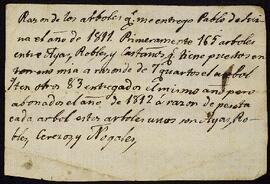 Razon de los arboles q.e me entrego Pablo de
na el año de 1811 Primeramente 165 arboles
entre Ayas, Robles, y Castaños q.e tiene puestos en
terreno mia a razon de 7 quartos el arbol
Iten otros 83 entregado el mismo año pero
abonado el año, de 1812 á razon de peseta
cada arbol estos arboles unos son Ayas, Ro-
bles, Cerezos y Nogales